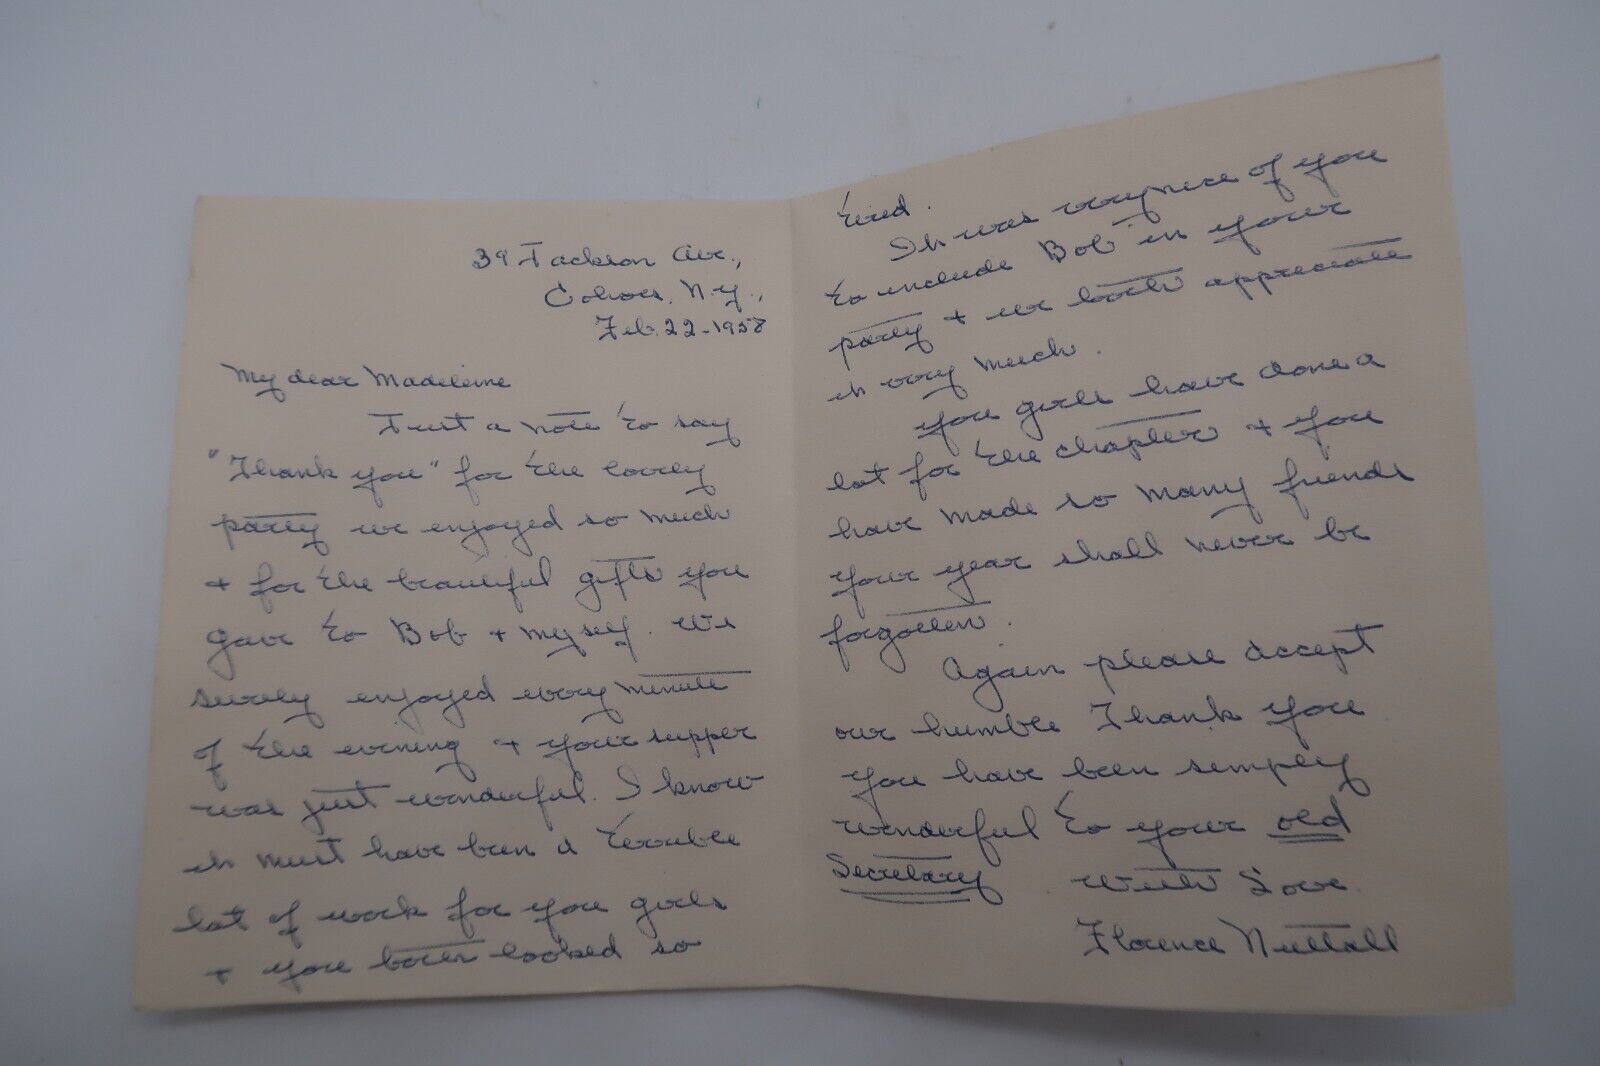 39 Jackson Ave.,
Cohoes, N.Y.,
Feb. 22-1958
My dear Madeleine
Just a note to say
"Thank you" for the lovely
party we enjoyed so much
+ for the beautiful gifts you
gave to Bob + myself. We
surely enjoyed every minute
of the evening + your supper
was just wonderful. I know
it must have been a terrible
lot of work for you girls
+ you both looked so
tired.
It was very nice of you
to include Bob in your
party + we both appreciate
it very much.
You girls have done a
lot for the chapter + you
have made so many friends
your year shall never be
forgotten.
Again please accept
our humble Thank you
you have been simply
wonderful to your old
Secretary
With Love
Florence Nuttall